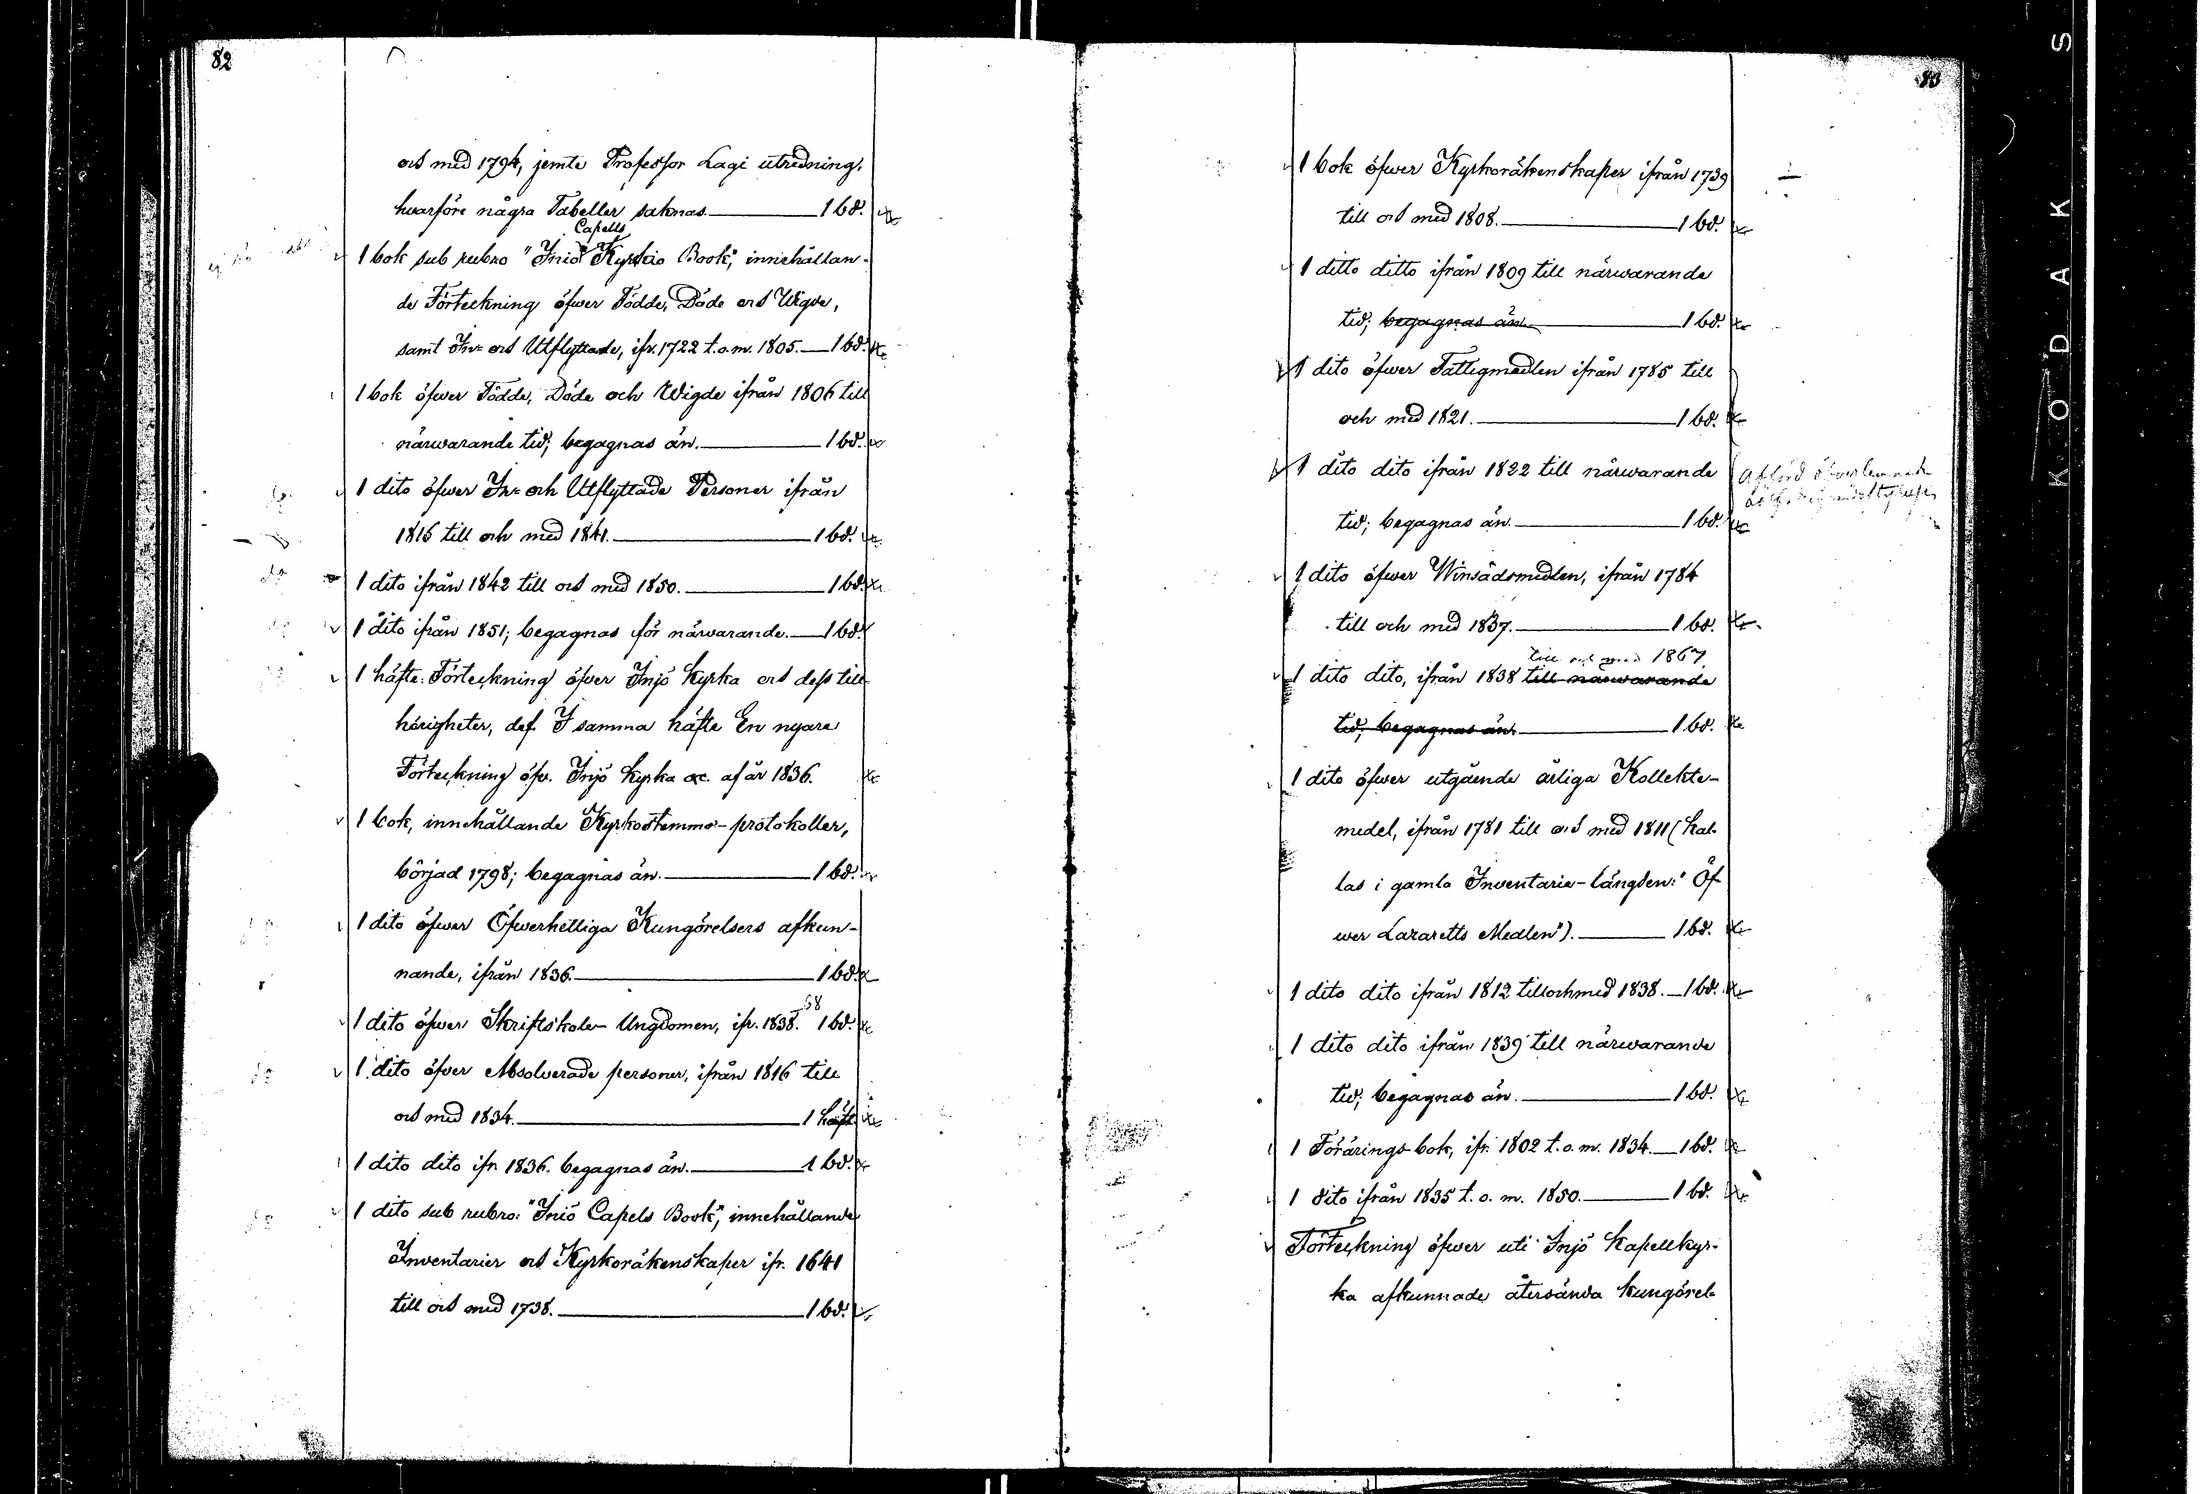 82
och med 1794, jemte Professor Lagi utredning,
hvarföre några Tabeller saknas. 1 bd.
Capells
1 bok sub rubro "Iniö Kyrkio Book", innehållan-
de Förteckning öfwer Födde, Döde och Wigde,
samt In- och Utflyttade, ifr. 1722 t.o.m. 1805. 1 bd.
1 bok öfwer Födde, Döde och Wigde ifrån 1806 till
närwarande tid; begagnas än. 1 bd.
1 dito öfwer In- och Utflyttade Personer ifrån
1815 till och med 1841. 1 bd.
1 dito ifrån 1842 till och med 1850. 1 bd.
1 dito ifrån 1851; begagnas för närwarande. 1 bd.
1 häfte: Förteckning öfwer Injö Kyrka och dess till-
hörigheter, def. I samma häfte En nyare
Förteckning öfv. Injö Kyrka &c. af år 1836.
1 bok, innehållande Kyrkostemmo-protokoller,
börjad 1798; begagnas än. 1 bd.
1 dito öfwer Öfwerhetliga Kungörelsers afkun-
nande, ifrån 1836. 1 bd.
1 dito öfwer Skriftskole-Ungdomen, ifr. 1838.-58 1 bd.
1 dito öfver Absolverade personer, ifrån 1816 till
och med 1834. 1 häft.
1 dito dito ifr. 1836. begagnas än. 1 bd.
1 dito sub rubro: "Iniö Capels Book", innehållande
Inventarier och Kyrkoräkenskaper ifr. 1641
till och med 1738. 1 bd.
83
1 bok öfwer Kyrkoräkenskaper ifrån 1739
till och med 1808. 1 bd.
1 ditto ditto ifrån 1809 till närwarande
tid; begagnas än. 1 bd.
1 dito öfwer Fattigmedlen ifrån 1785 till
och med 1821. 1 bd.
1 dito dito ifrån 1822 till närwarande
tid; begagnas än. 1 bd.
1 dito öfwer Winsädsmedlen, ifrån 1784
till och med 1837. 1 bd.
till och med 1867
1 dito dito, ifrån 1838 till närwarande
tid; begagnas än. 1 bd.
1 dito öfwer utgående årliga Kollekte-
medel, ifrån 1781 till och med 1811 (kal-
las i gamla Inventarie-längden: "Öf
wer Lazaretts Medlen"). 1 bd.
1 dito dito ifrån 1812 till och med 1838. 1 bd.
1 dito dito ifrån 1839 till närwarande
tid; begagnas än. 1 bd.
1 Förärings-bok, ifr. 1802 t.o.m. 1834. 1 bd.
1 dito ifrån 1835 t.o.m. 1850. 1 bd.
Förteckning öfwer uti Injö Kapellkyr-
ka afkunnade återsända kungörel-
KODAK S